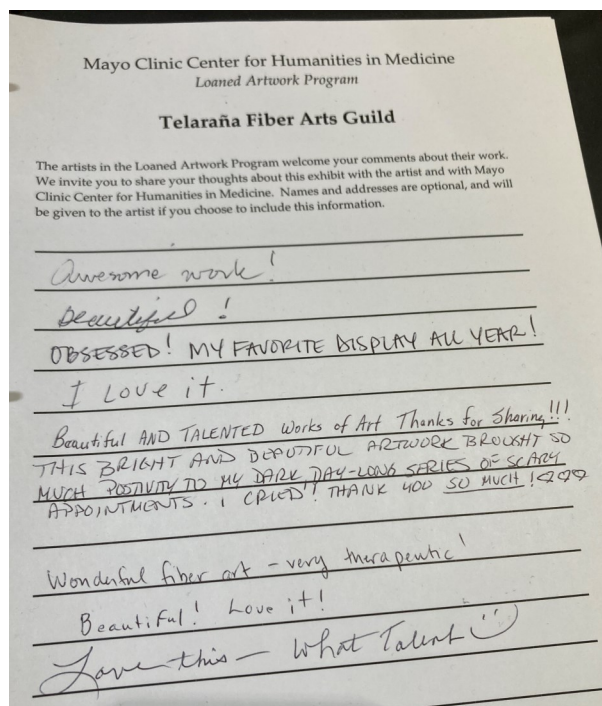 Mayo Clinic Center for Humanities in Medicine
Loaned Artwork Program
Telaraña Fiber Arts Guild
The artists in the Loaned Artwork Program welcome your comments about their work.
We invite you to share your thoughts about this exhibit with the artist and with Mayo
Clinic Center for Humanities in Medicine. Names and addresses are optional, and will
be given to the artist if you choose to include this information.
Awesome work!
Beautiful!
OBSESSED! MY FAVORITE DISPLAY ALL YEAR!
I Love it.
Beautiful AND TALENTED Works of Art Thanks for Sharing!!!
THIS BRIGHT AND BEAUTIFUL ARTWORK BROUGHT SO
MUCH POSTIVITY TO MY DARK DAY-LONG SERIES OF SCARY
APPOINTMENTS. I CRIED! THANK YOU SO MUCH!♡♡♡
Wonderful fiber art - very therapeutic!
Beautiful! Love it!
Love this - What Talent ☺